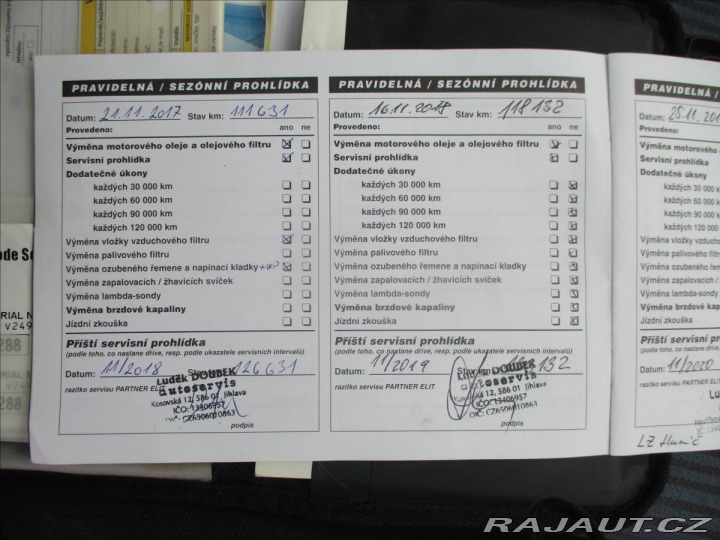 PRAVIDELNÁ / SEZÓNNÍ PROHLÍDKA
Datum: 21.11.2017 Stav km: 111631
Provedeno: ano ne
Výměna motorového oleje a olejového filtru
Servisní prohlídka
Dodatečné úkony
každých 30 000 km
každých 60 000 km
každých 90 000 km
každých 120 000 km
Výměna vložky vzduchového filtru
Výměna palivového filtru
Výměna ozubeného řemene a napínací kladky
Výměna zapalovacích / žhavicích svíček
Výměna lambda-sondy
Výměna brzdové kapaliny
Jízdní zkouška
Příští servisní prohlídka
(podle toho, co nastane dříve, resp. podle ukazatele servisních intervalů)
Datum: 11/2018 126631
razítko servisu PARTNER ELIT
Luděk DOUBEK
autoservis
Kosovská 12, 586 01 Jihlava
IČO: 13406957
CZ6506010863
podpis
PRAVIDELNÁ / SEZÓNNÍ PROHLÍDKA
Datum: 16.11.2018 Stav km: 118132
Provedeno: ano ne
Výměna motorového oleje a olejového filtru
Servisní prohlídka
Dodatečné úkony
každých 30 000 km
každých 60 000 km
každých 90 000 km
každých 120 000 km
Výměna vložky vzduchového filtru
Výměna palivového filtru
Výměna ozubeného řemene a napínací kladky
Výměna zapalovacích / žhavicích svíček
Výměna lambda-sondy
Výměna brzdové kapaliny
Jízdní zkouška
Příští servisní prohlídka
(podle toho, co nastane dříve, resp. podle ukazatele servisních intervalů)
Datum: 11/2019
razítko servisu PARTNER ELIT
DOUBEK
autoservis
12, 586 01 Jihlava
IČO: 13406957
DIČ: CZ6506010863
podpis
PRAVIDELNÁ /
Datum: 25.11.201
Provedeno:
Výměna motorového
Servisní prohlídka
Dodatečné úkony
každých 30 000
každých 60 000
každých 90 000
každých 120 000
Výměna vložky
Výměna palivového
Výměna ozubeného
Výměna zapalovací
Výměna lambda-so
Výměna brzdové
Jízdní zkouška
Příští servisní
(podle toho, co nastane
Datum: 11/2020
razítko servisu PARTNER
V249
288
288
RAJAUT.CZ